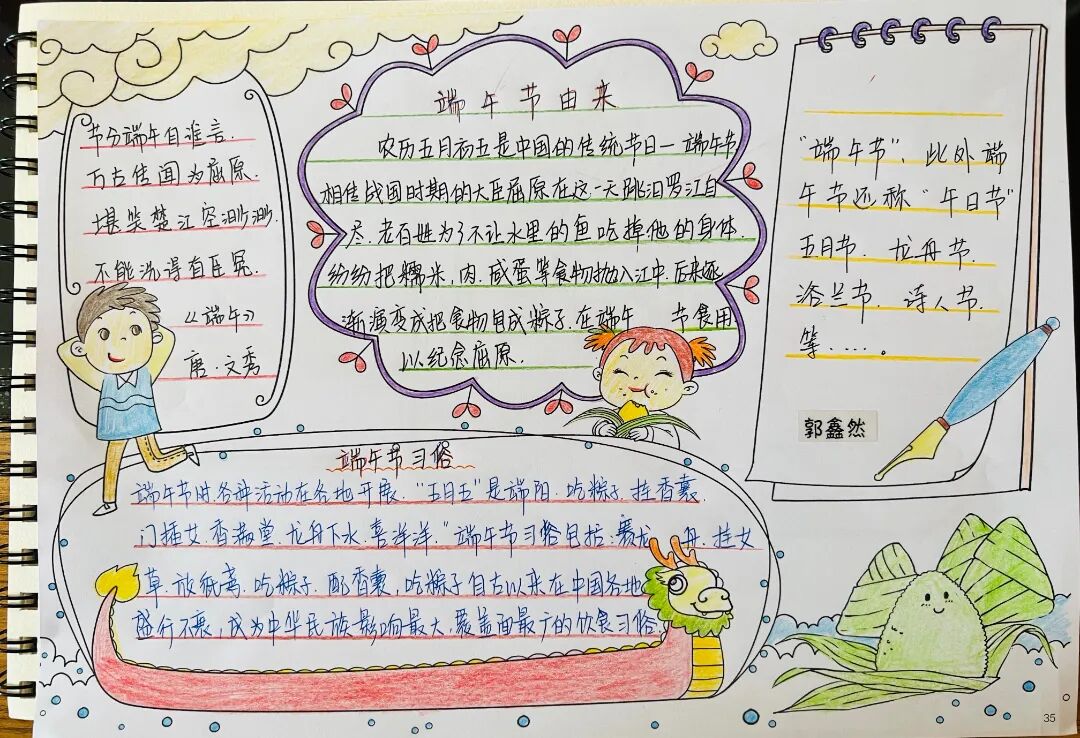 节分端午自谁言.
万古传闻为屈原.
堪笑楚江空渺渺.
不能洗得直臣冤.
《端午》
唐.文秀
端午节由来
农历五月初五是中国的传统节日一端午节
相传战国时期的大臣屈原在这一天跳汨罗江自
尽.老百姓为了不让水里的鱼吃掉他的身体.
纷纷把糯米,肉.咸蛋等食物抛入江中.后来逐
渐演变成把食物包成粽子.在端午 节食用
以纪念屈原.
“端午节”,此外端
午节还称“午日节”
五月节.龙舟节.
浴兰节.诗人节.
等.....。
郭鑫然
端午节习俗
端午节时各种活动在各地开展.“五月五”是端阳.吃粽子.挂香囊.
门插艾.香满堂.龙舟下水.喜洋洋.”端午节习俗包括:赛龙 舟.挂艾
草.放纸鸢.吃粽子.配香囊,吃粽子自古以来在中国各地
盛行不衰,成为中华民族影响最大.覆盖面最广的饮食习俗.
35